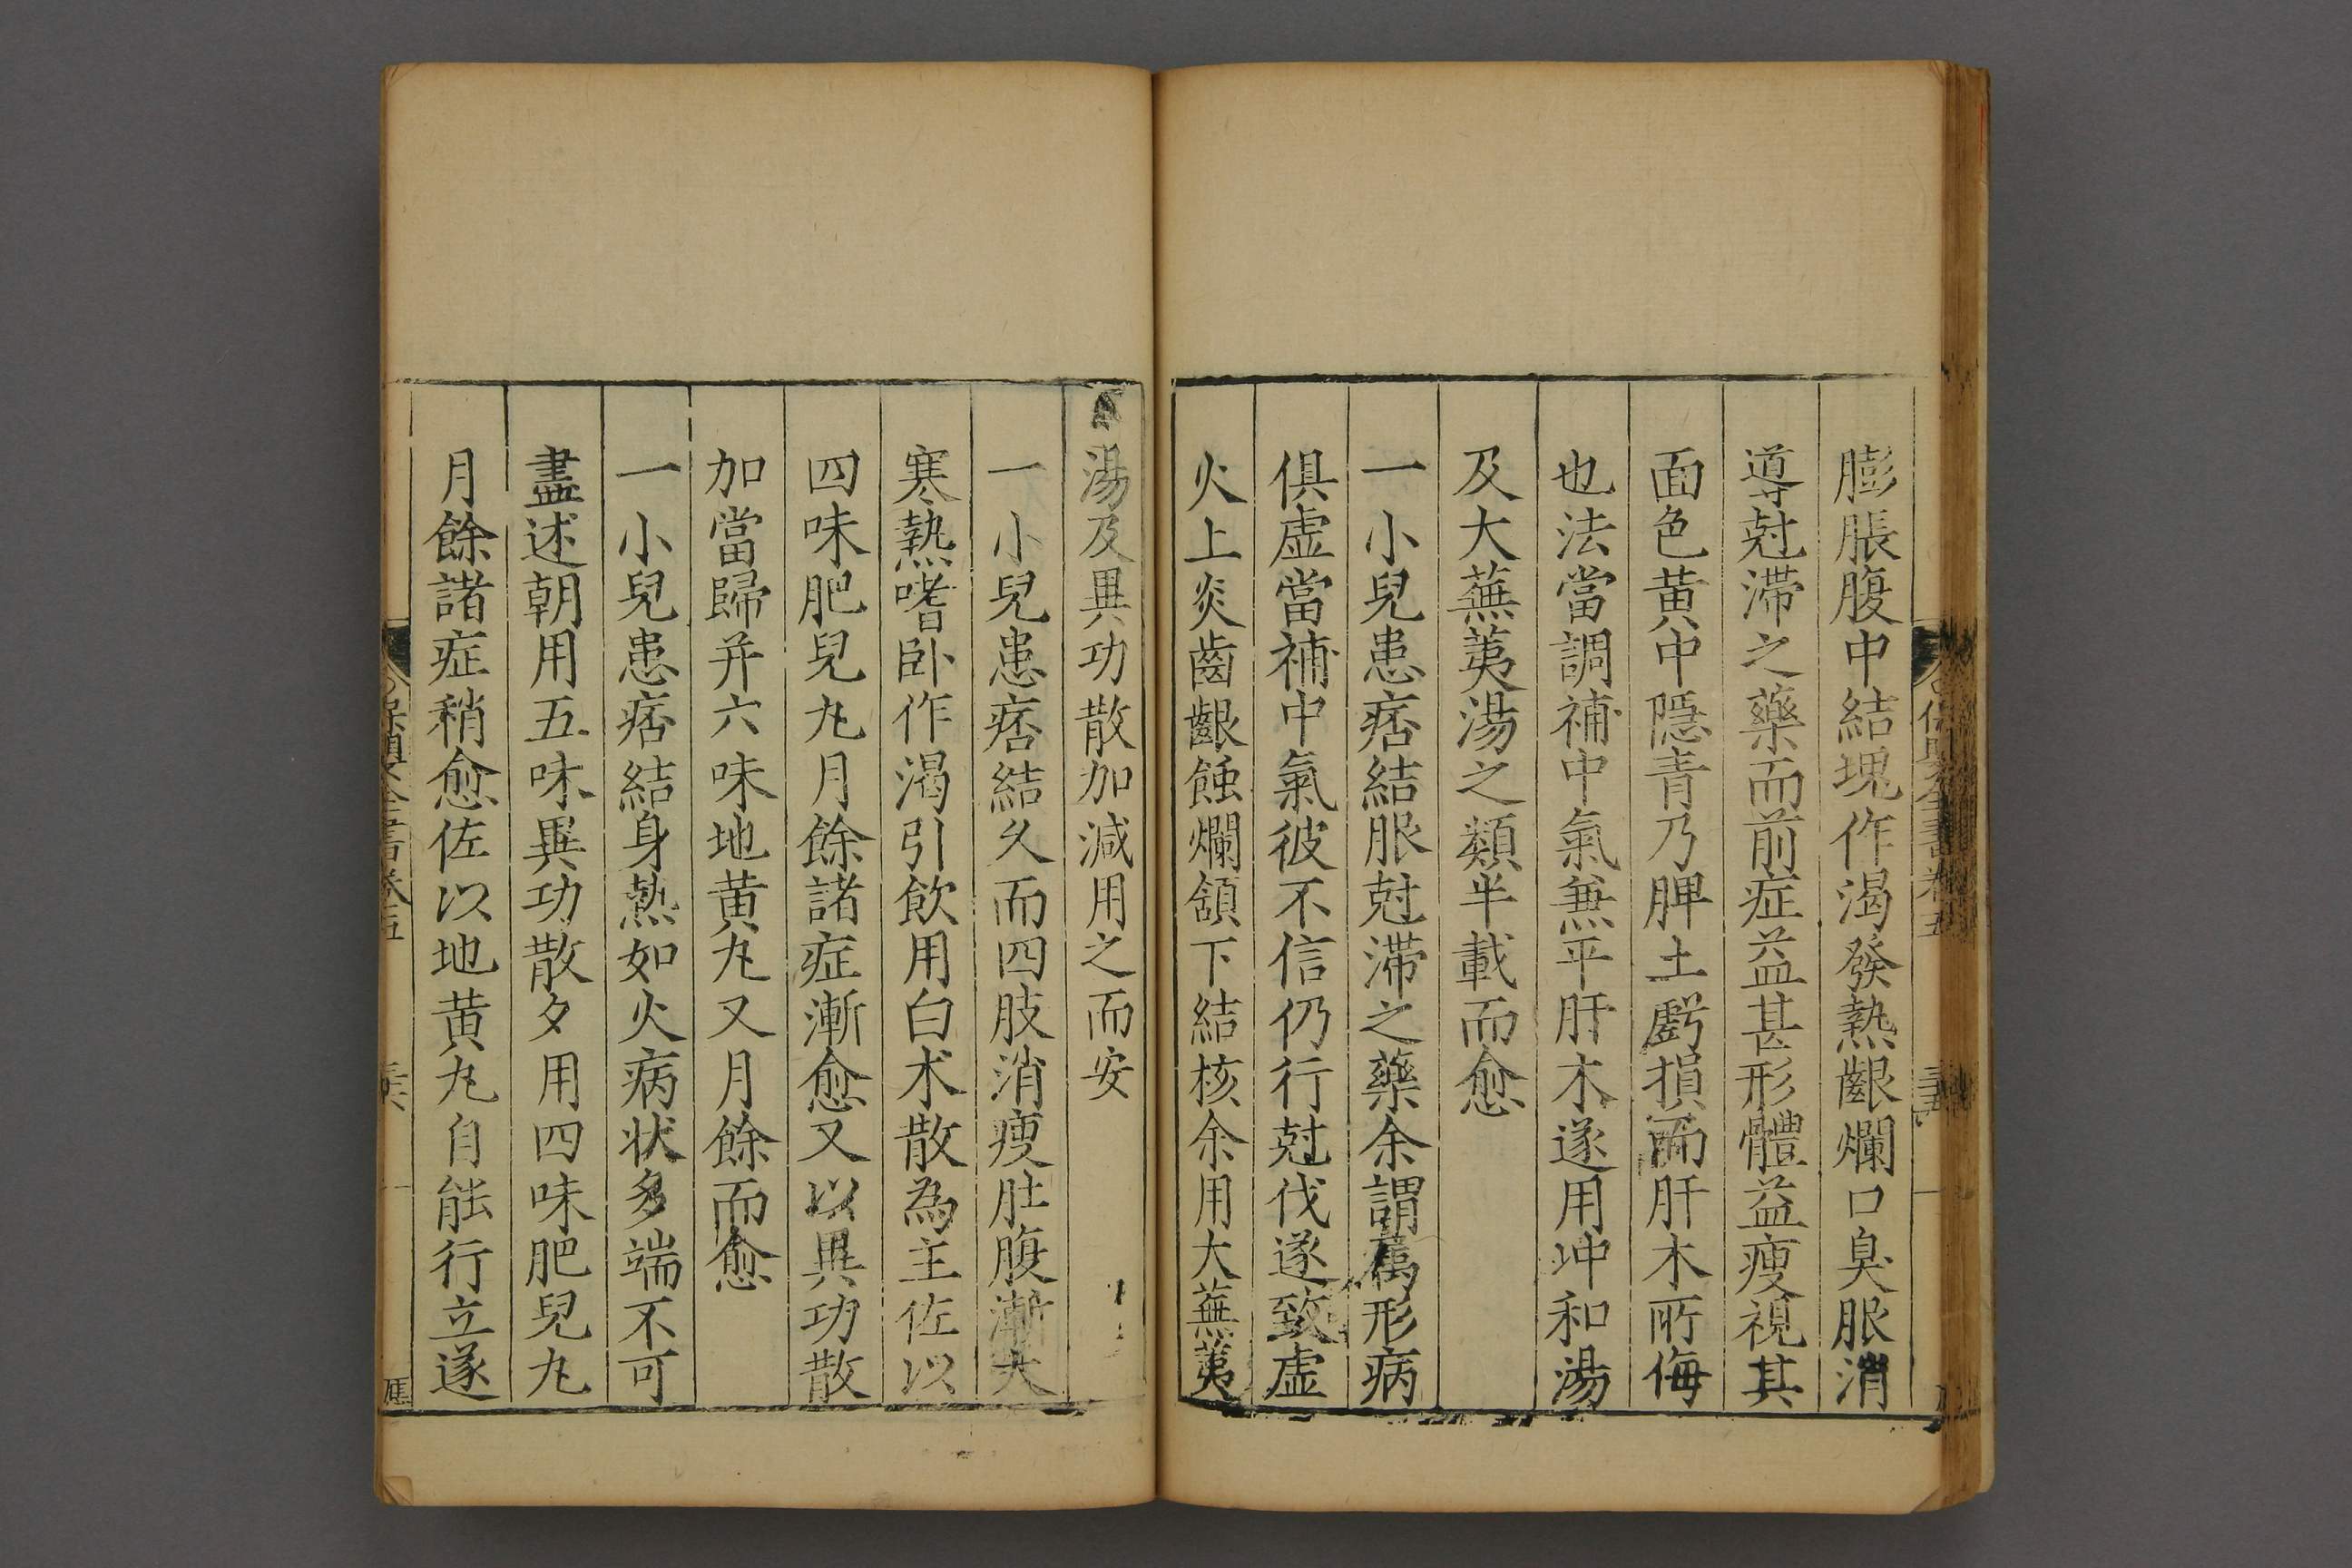 膨脹腹中結塊作渴發熱齦爛口臭服消
導尅滯之藥而前症益甚形體益瘦視其
面色黃中隱青乃脾土虧損而肝木所侮
也法當調補中氣兼平肝木遂用坤和湯
及大蕪荑湯之類半載而愈
一小兒患痞結服尅滯之藥余謂屬形病
俱虛當補中氣彼不信仍行尅伐遂致虛
火上炎齒齦蝕爛頷下結核余用大蕪荑
湯及異功散加減用之而安
一小兒患痞結久而四肢消瘦肚腹漸大
寒熱嗜卧作渴引飲用白术散為主佐以
四味肥兒丸月餘諸症漸愈又以異功散
加當歸并六味地黃丸又月餘而愈
一小兒患痞結身熱如火病状多端不可
盡述朝用五味異功散夕用四味肥兒丸
月餘諸症稍愈佐以地黃丸自能行立遂